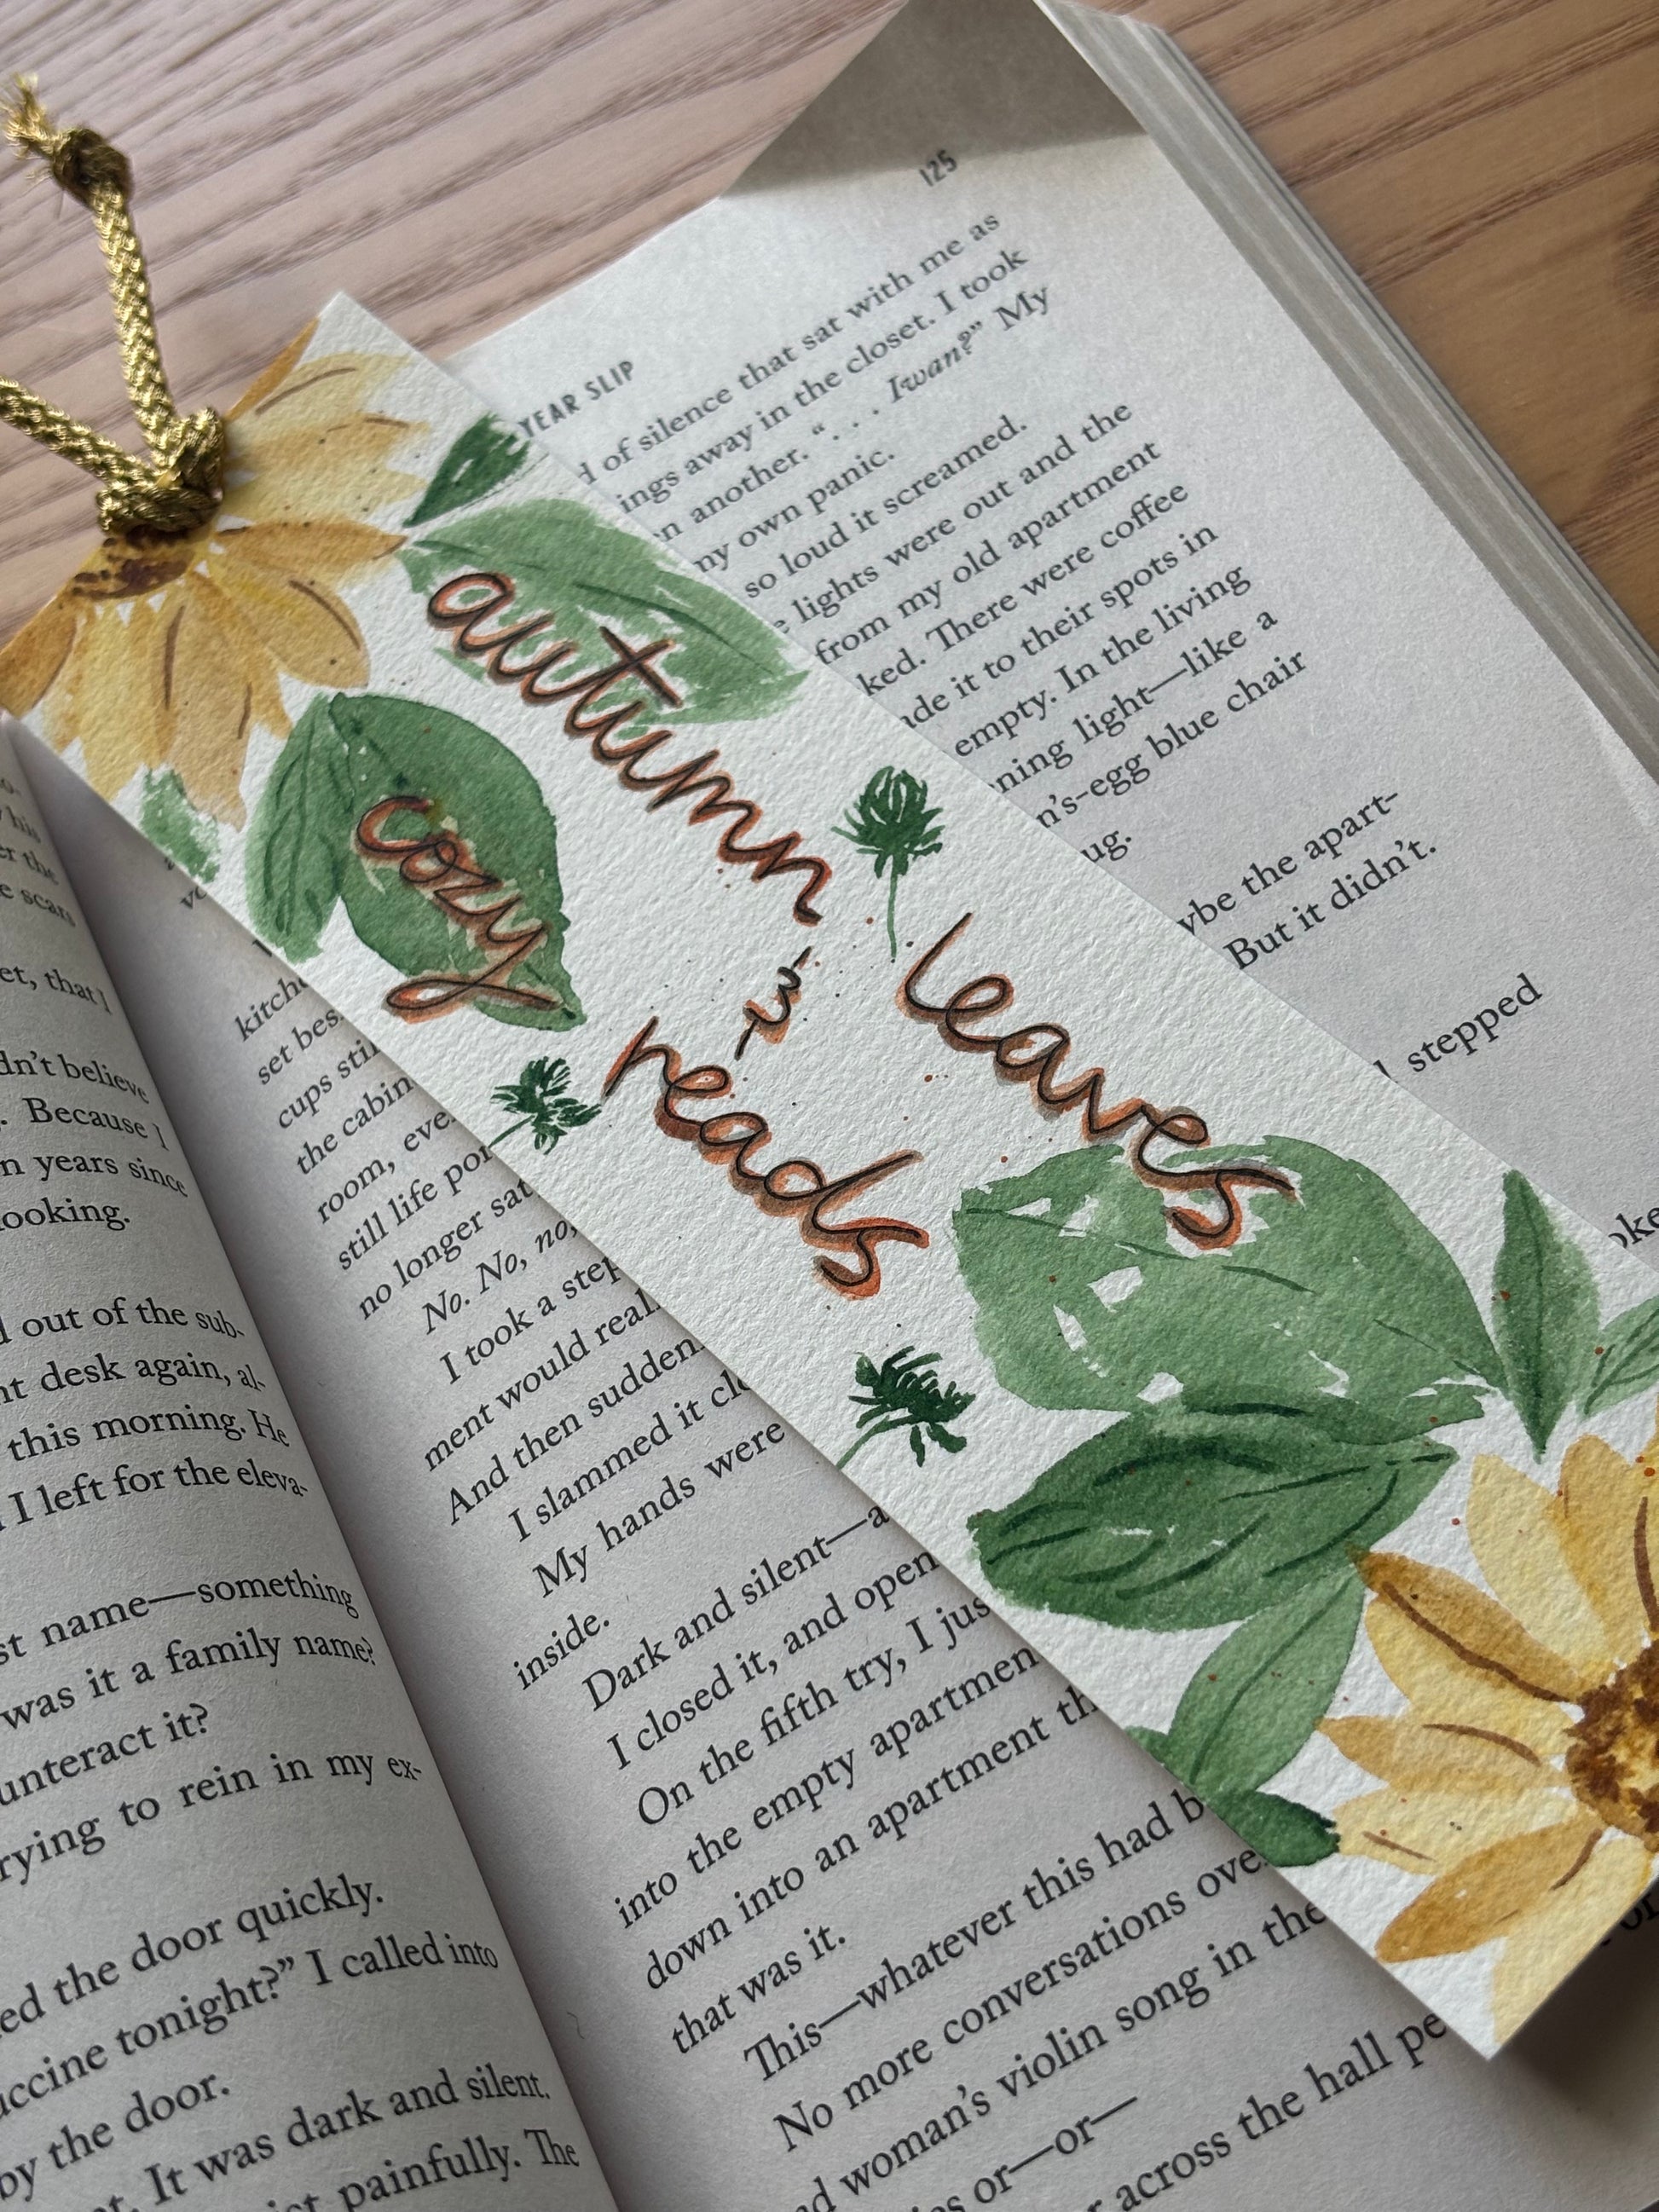 autumn leaves
&
cozy reads
125
YEAR SLIP
of silence that sat with me as
ings away in the closet. I took
another. “. . . Iwan?” My
my own panic.
so loud it screamed.
lights were out and the
from my old apartment
ked. There were coffee
ade it to their spots in
empty. In the living
ning light—like a
n’s-egg blue chair
ug.
ybe the apart-
But it didn’t.
stepped
kitche
set bes
cups stil
the cabin
room, eve
still life por
no longer sat
No. No, no,
I took a step
ment would reall
And then sudden
I slammed it clo
My hands were
inside.
Dark and silent—a
I closed it, and open
On the fifth try, I jus
into the empty apartmen
down into an apartment th
that was it.
This—whatever this had b
No more conversations ove
woman’s violin song in the
or—or—
across the hall pe
his
er the
e scars
et, that I
dn’t believe
. Because I
n years since
ooking.
out of the sub-
nt desk again, al-
this morning. He
I left for the eleva-
st name—something
was it a family name?
unteract it?
rying to rein in my ex-
ed the door quickly.
uccine tonight?” I called into
by the door.
. It was dark and silent.
painfully. The